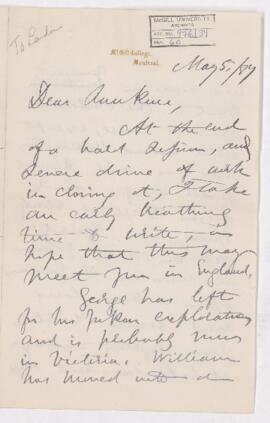 To London
McGILL UNIVERSITY
ARCHIVES
ACC. NO. 976/39
REF. 60
McGill College,
Montreal.
May 5, /87
Dear
At the end
of a hard session, and
severe drive of work
in closing it, I take
an early breathing
time to write, in
hope that this may
meet you in England.
George has left
for his Yukon exploration
and is probably now
in Victoria. William
has moved into